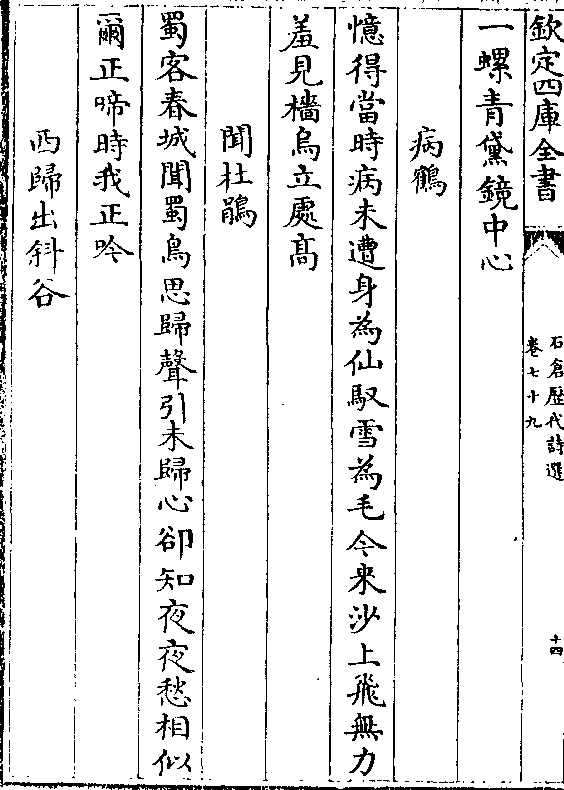 欽定四庫全書
石倉歷代詩選
卷七十九
十四
一螺青黛鏡中心
病鶴
憶得當時病未遭身為仙馭雪為毛今来沙上飛無力
羞見檣烏立處髙
聞杜鵑
蜀客春城聞蜀鳥思歸聲引未歸心卻知夜夜愁相似
爾正啼時我正吟
西歸出斜谷